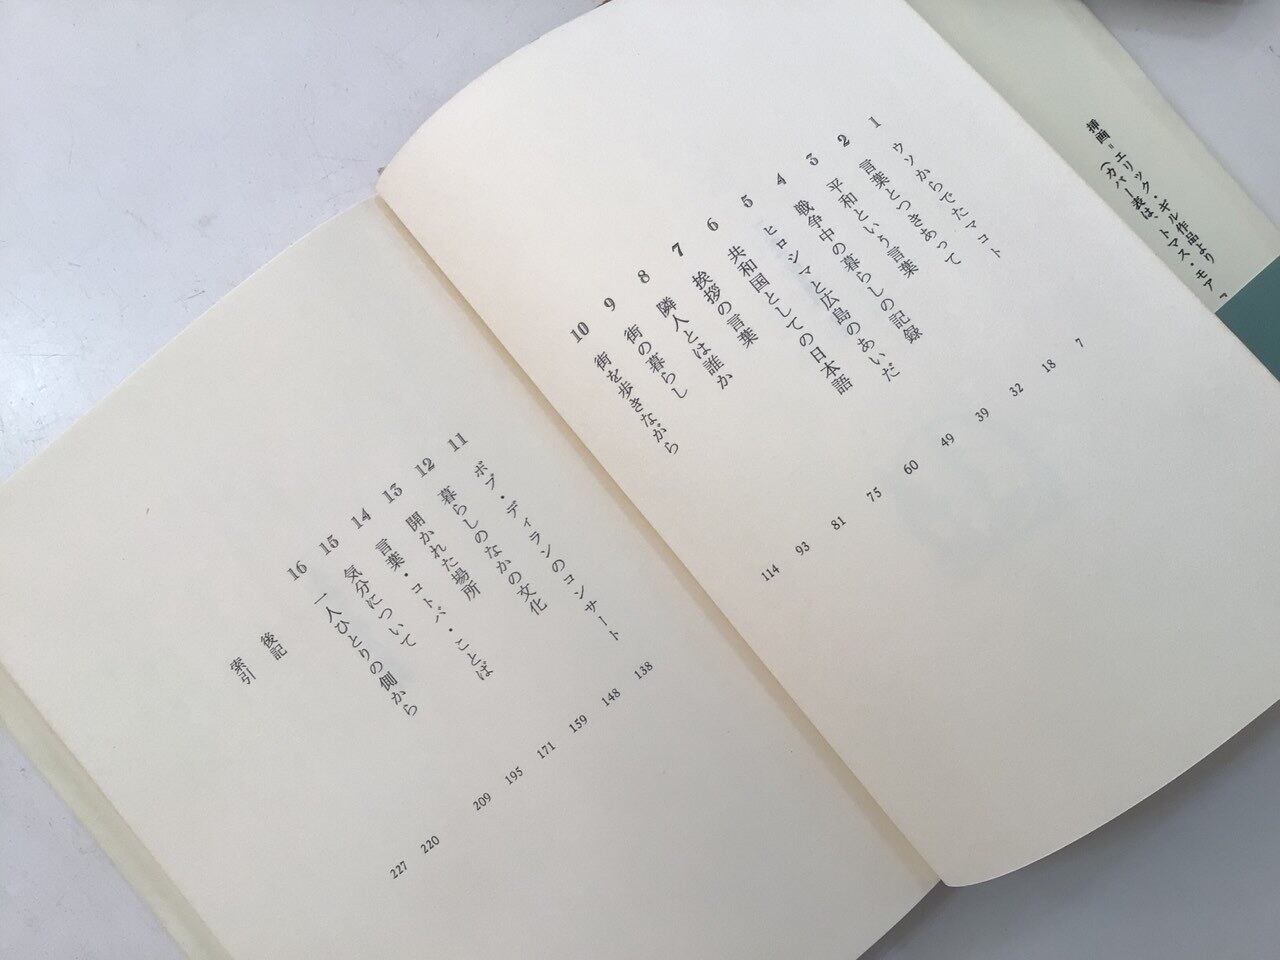 挿画=エリック・ギル作品より
(カバー表は、トマス・モア『
1 ウソからでたマコト 7
2 言葉とつきあって 18
3 平和という言葉 32
4 戦争中の暮らしの記録 39
5 ヒロシマと広島のあいだ 49
6 共和国としての日本語 60
7 挨拶の言葉 75
8 隣人とは誰か 81
9 街の暮らし 93
10 街を歩きながら 114
11 ボブ・ディランのコンサート 138
12 暮らしのなかの文化 148
13 開かれた場所 159
14 言葉・コトバ・ことば 171
15 気分について 195
16 一人ひとりの側から 209
後記 220
索引 227